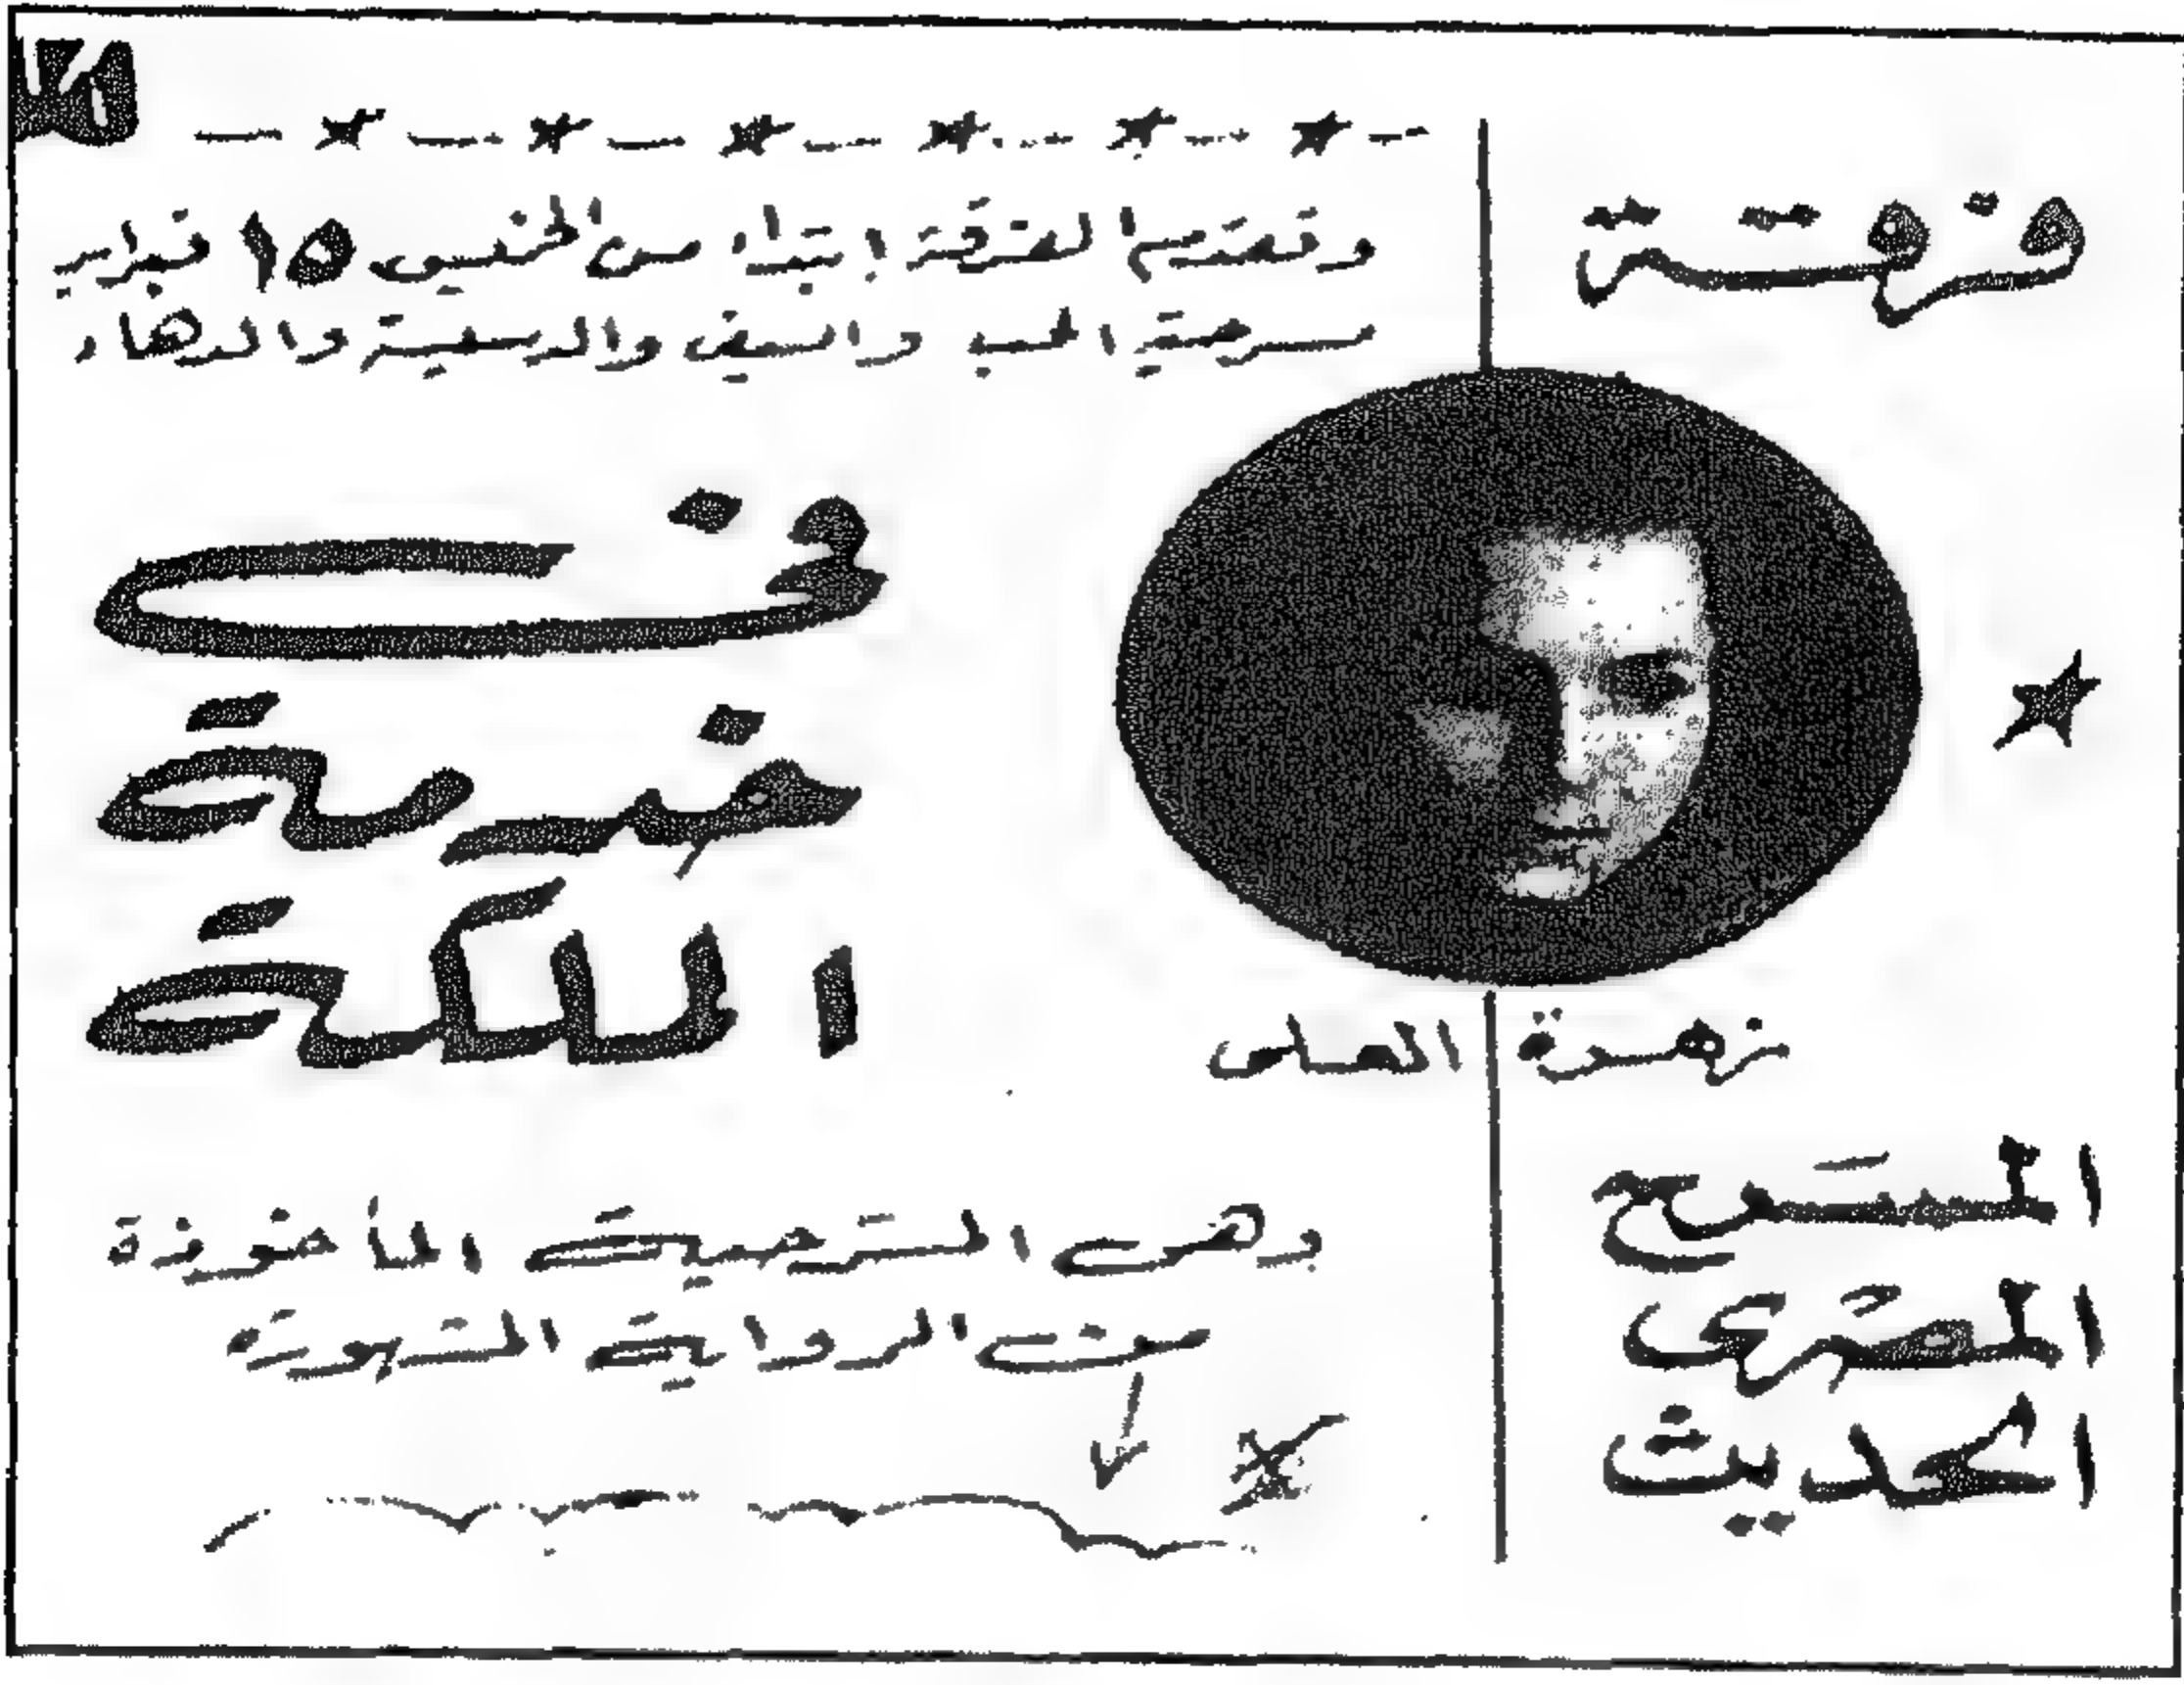 فرقة
المسرح
المصرى
الحديث
وتقدم الفرقة ابتداء من الخميس ١٥ فبراير
مسرحية الحب والسيف والدسيسة والدهاء
فى
خدمة
الملكة
زهرة العلى
وهى المسرحية المأخوذة
من الرواية الشهورة